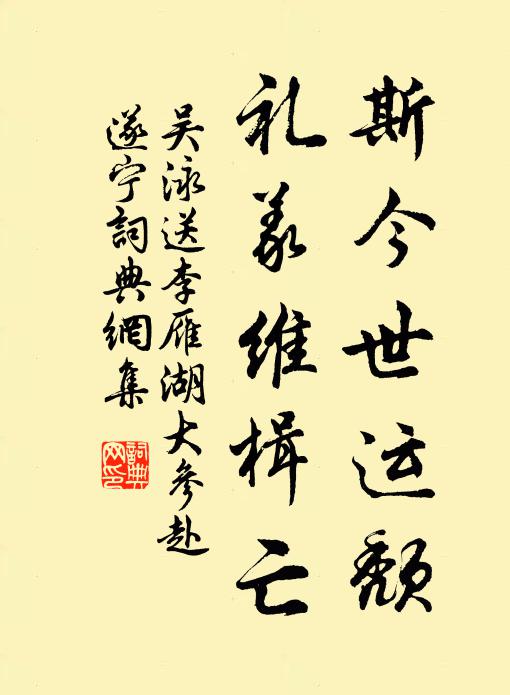 斯今世运颓
礼义维楫亡
吴泳送李雁湖大参赴
遂宁词典網集
詞典
网印